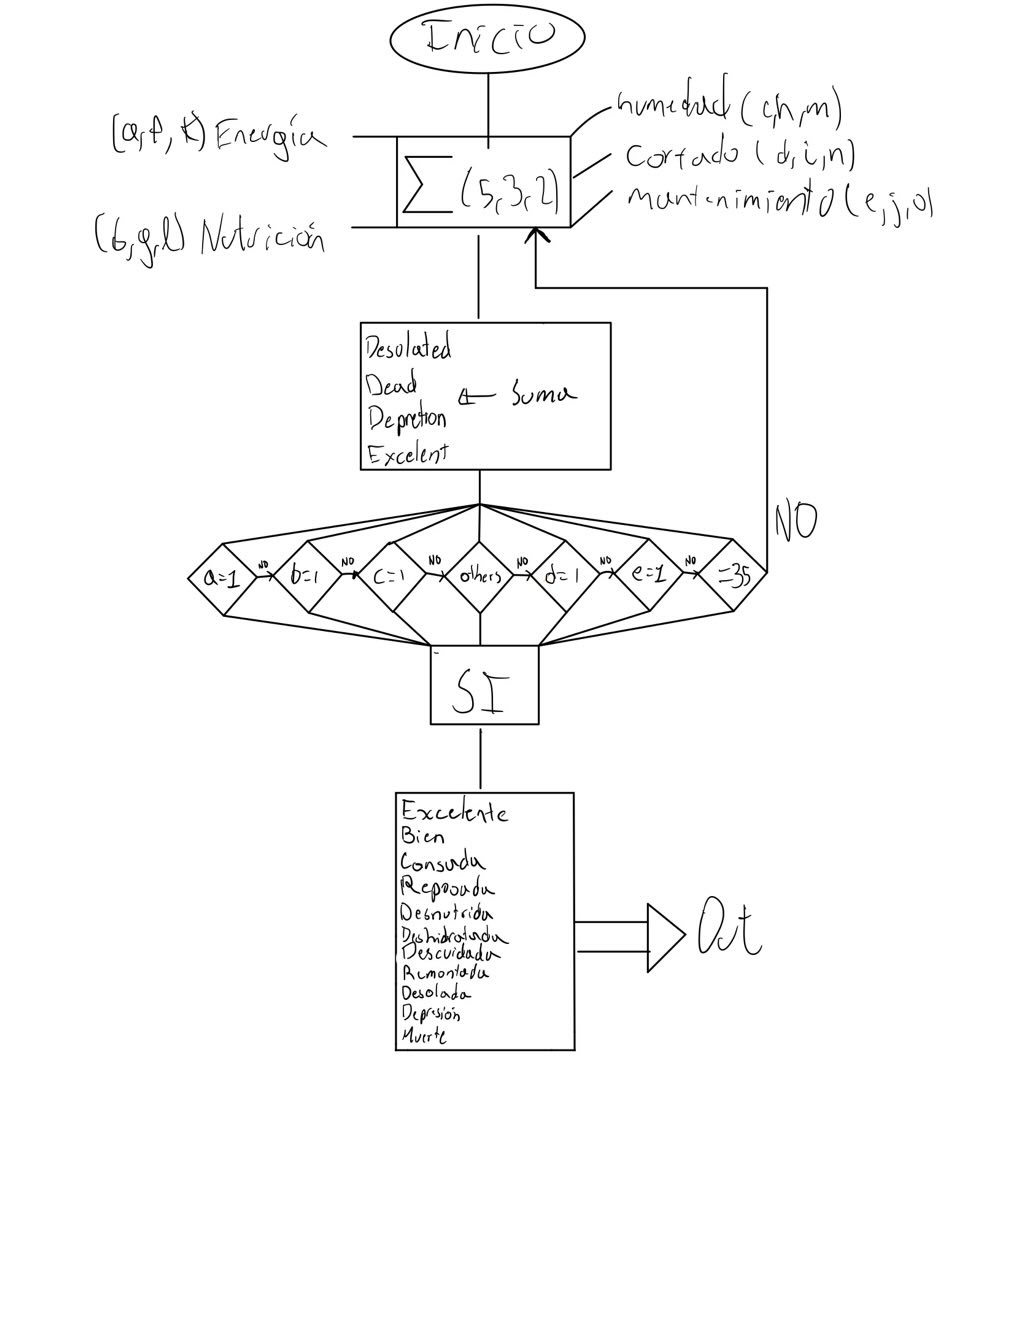 Inicio
(a,f,k) Energía
humedad (c,h,m)
∑ (5,3,2)
Cortado (d,i,n)
mantenimiento (e,j,o)
(b,g,l) Nutrición
Desolated
Dead
← Suma
Depretion
Excelent
NO
a=1
NO
b=1
NO
c=1
NO
others
NO
d=1
NO
e=1
NO
=35
SI
Excelente
Bien
Cansada
Reposada
Desnutrida
Deshidratada
Descuidada
Remontada
Desolada
Depresión
Muerte
Out